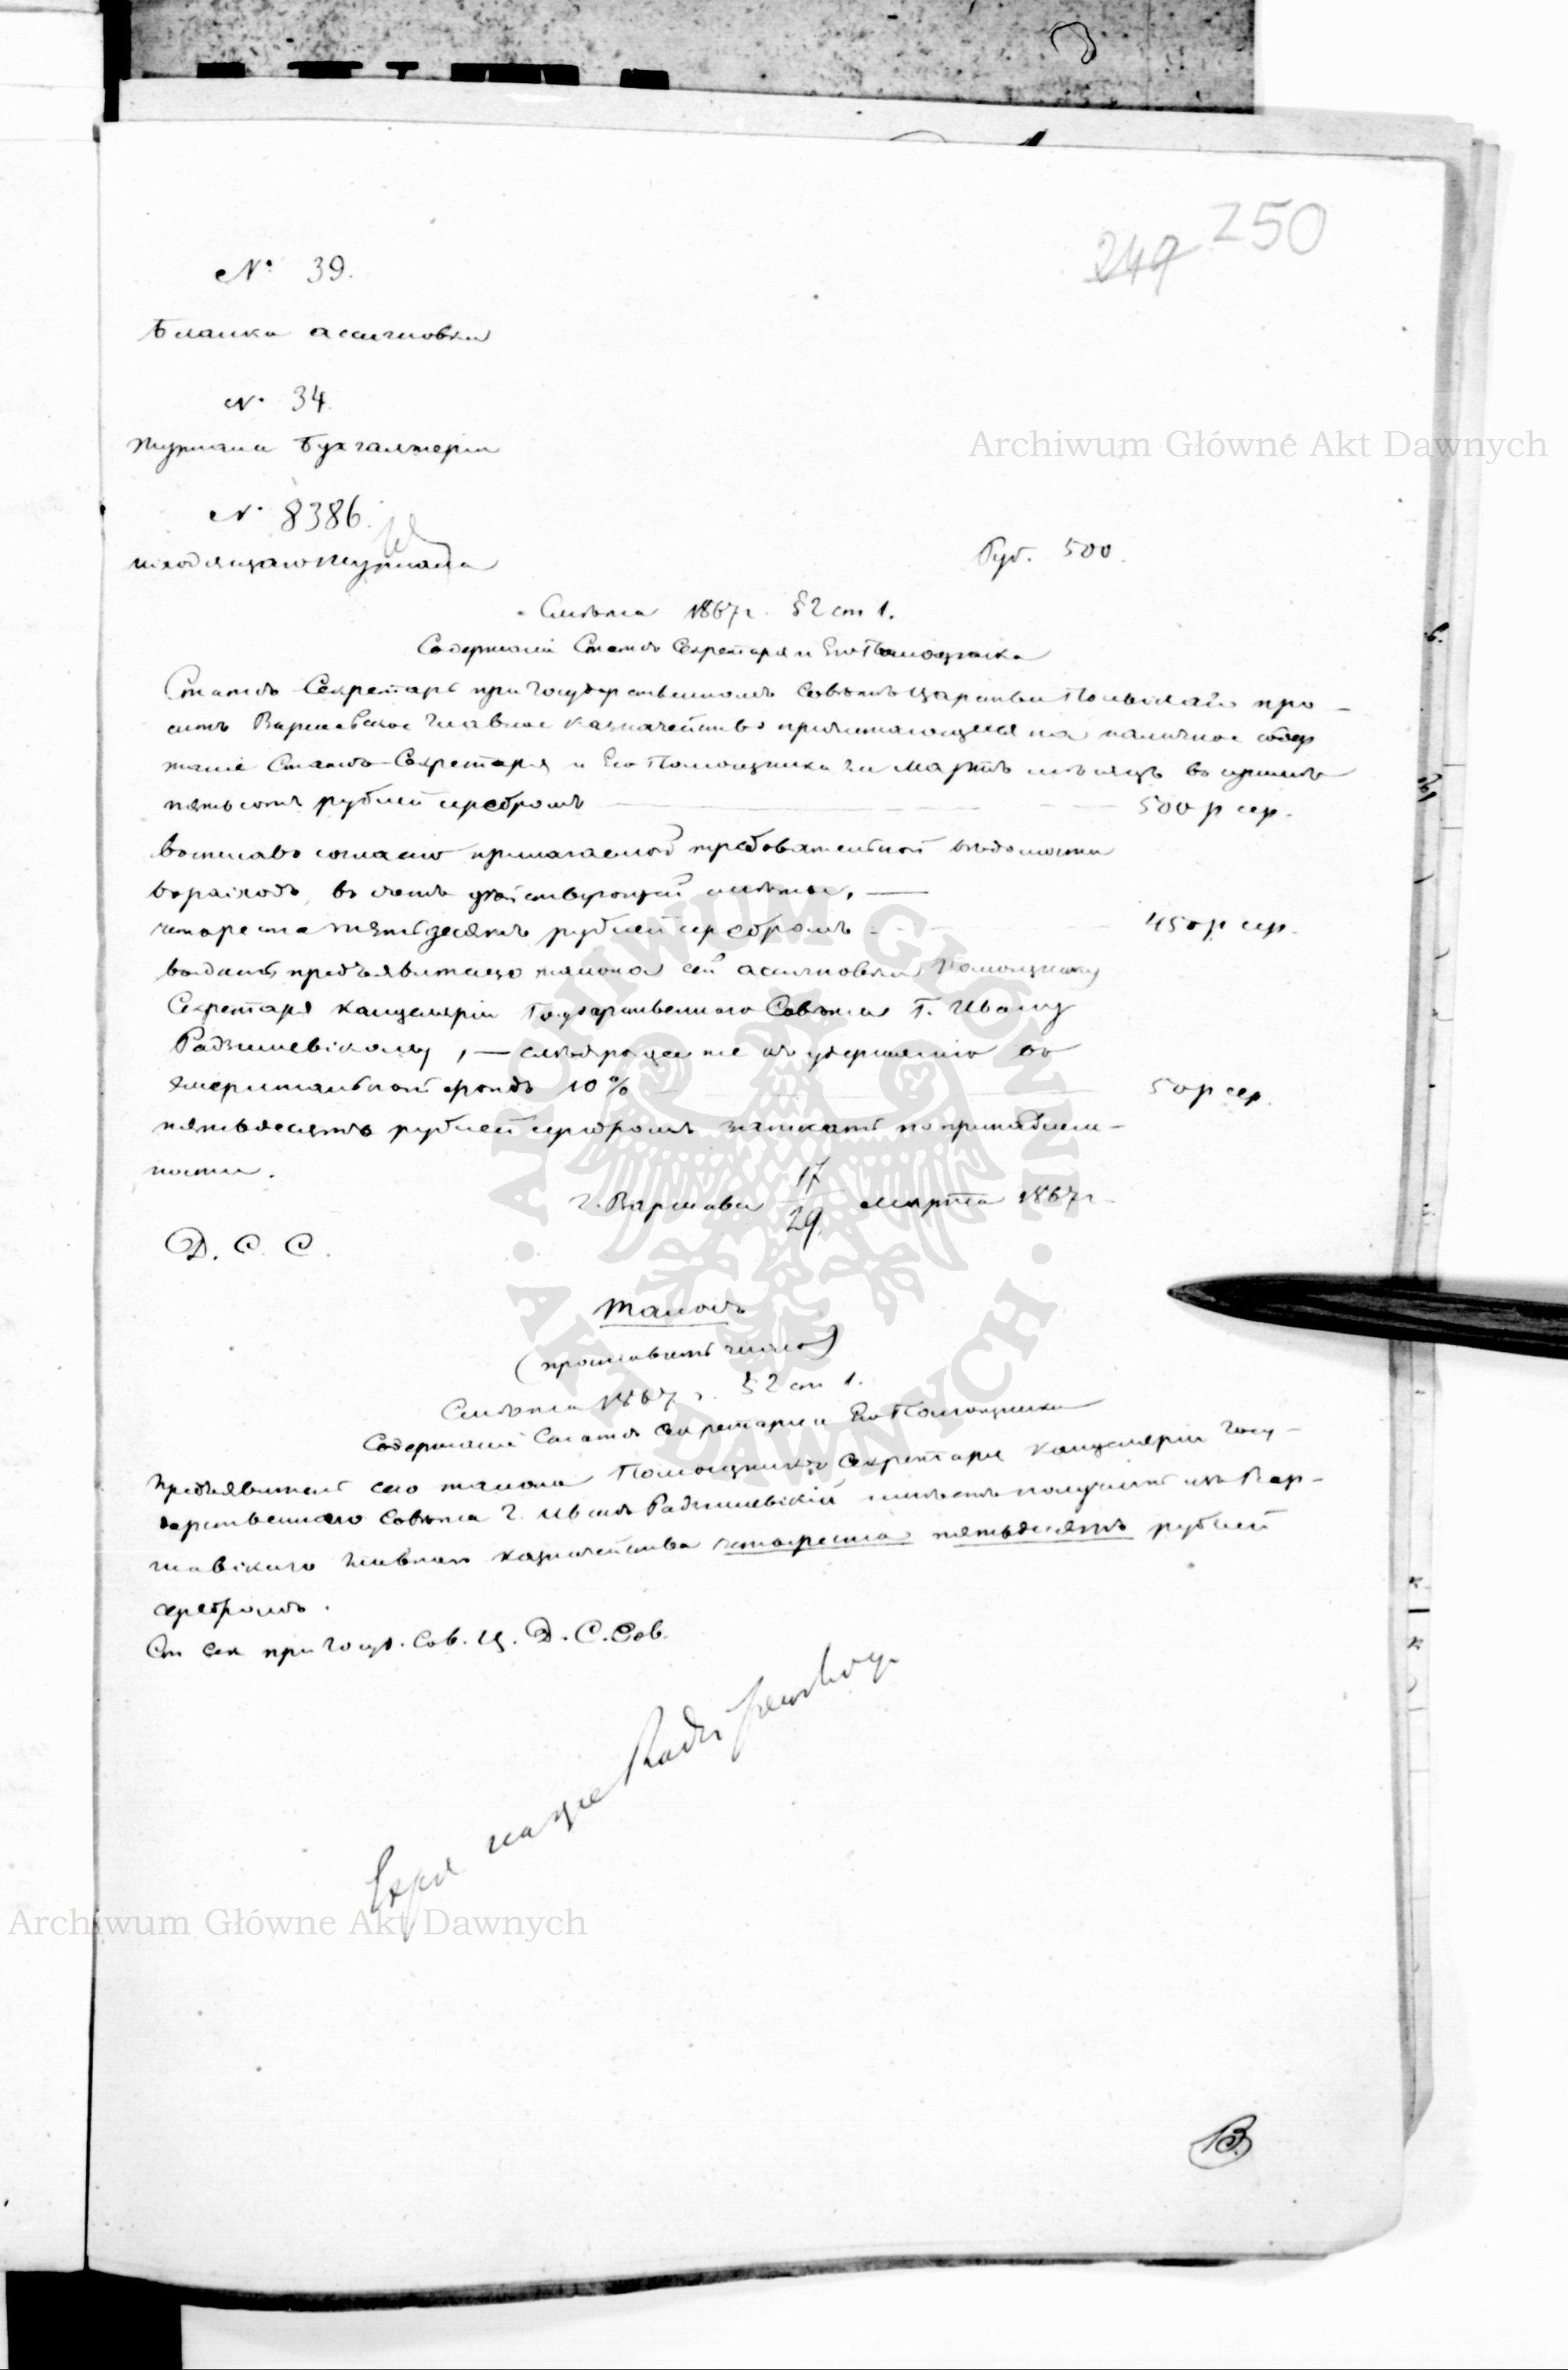 249 250
№ 39.
Бланка ассигновки
№ 34.
Журнала Бухгалтеріи
№ 8386.
исходящаго Журнала
Archiwum Główne Akt Dawnych
Руб. 500.
Смѣта 1867 г. § 2 ст 1.
Содержаніе Статсъ Секретаря и Его Помощника
Статсъ Секретарь при Государственномъ Совѣтѣ Царства Польскаго про-
ситъ Варшавское Главное Казначейство причитающіяся на наличное содер
жаніе Статсъ-Секретаря и Его Помощника за Мартъ мѣсяцъ въ суммѣ
пятьсотъ рублей серебромъ 500 р сер.
согласно прилагаемой требовательной вѣдомости
въ расходъ, въ счетъ дѣйствующей смѣты, —
четыреста пятьдесятъ рублей серебромъ 450 р сер.
выдать предъявителю талона сей ассигновки Помощнику
Секретаря Канцеляріи Государственнаго Совѣта Г. Ивану
Радзишевскому, — слѣдующіе же къ удержанію въ
эмеритальный фондъ 10 % 50 р сер.
пятьдесятъ рублей серебромъ записать по принадлеж-
ности.
г. Варшава 17/29 Марта 1867 г.
Д. С. С.
Талонъ
(проставить число)
Смѣта 1867 г. § 2 ст 1.
Содержаніе Статсъ Секретаря и Его Помощника
Предъявитель сего талона Помощникъ Секретаря Канцеляріи Госу-
дарственнаго Совѣта Г. Иванъ Радзишевскій имѣетъ получить изъ Вар-
шавскаго Главнаго Казначейства четыреста пятьдесятъ рублей
серебромъ.
Ст Сек при Госуд. Сов. Ц. Д. С. Сов.
Archiwum Główne Akt Dawnych
ARCHIWUM GŁÓWNE AKT DAWNYCH